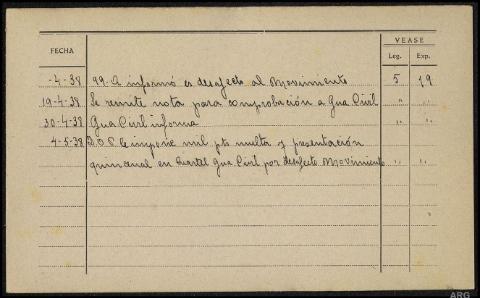 VEASE
FECHA
Leg. Exp.
-4-38 99.A informó es desafecto al Movimiento 5 19
19-4-38 Se remite nota para comprobación a Gua Civil " "
30-4-38 Gua Civil informa " "
4-5-38 D.O.P. le impone mil pts multa y presentación
quincenal en Cuartel Gua Civil por desafecto Movimiento " "
ARG